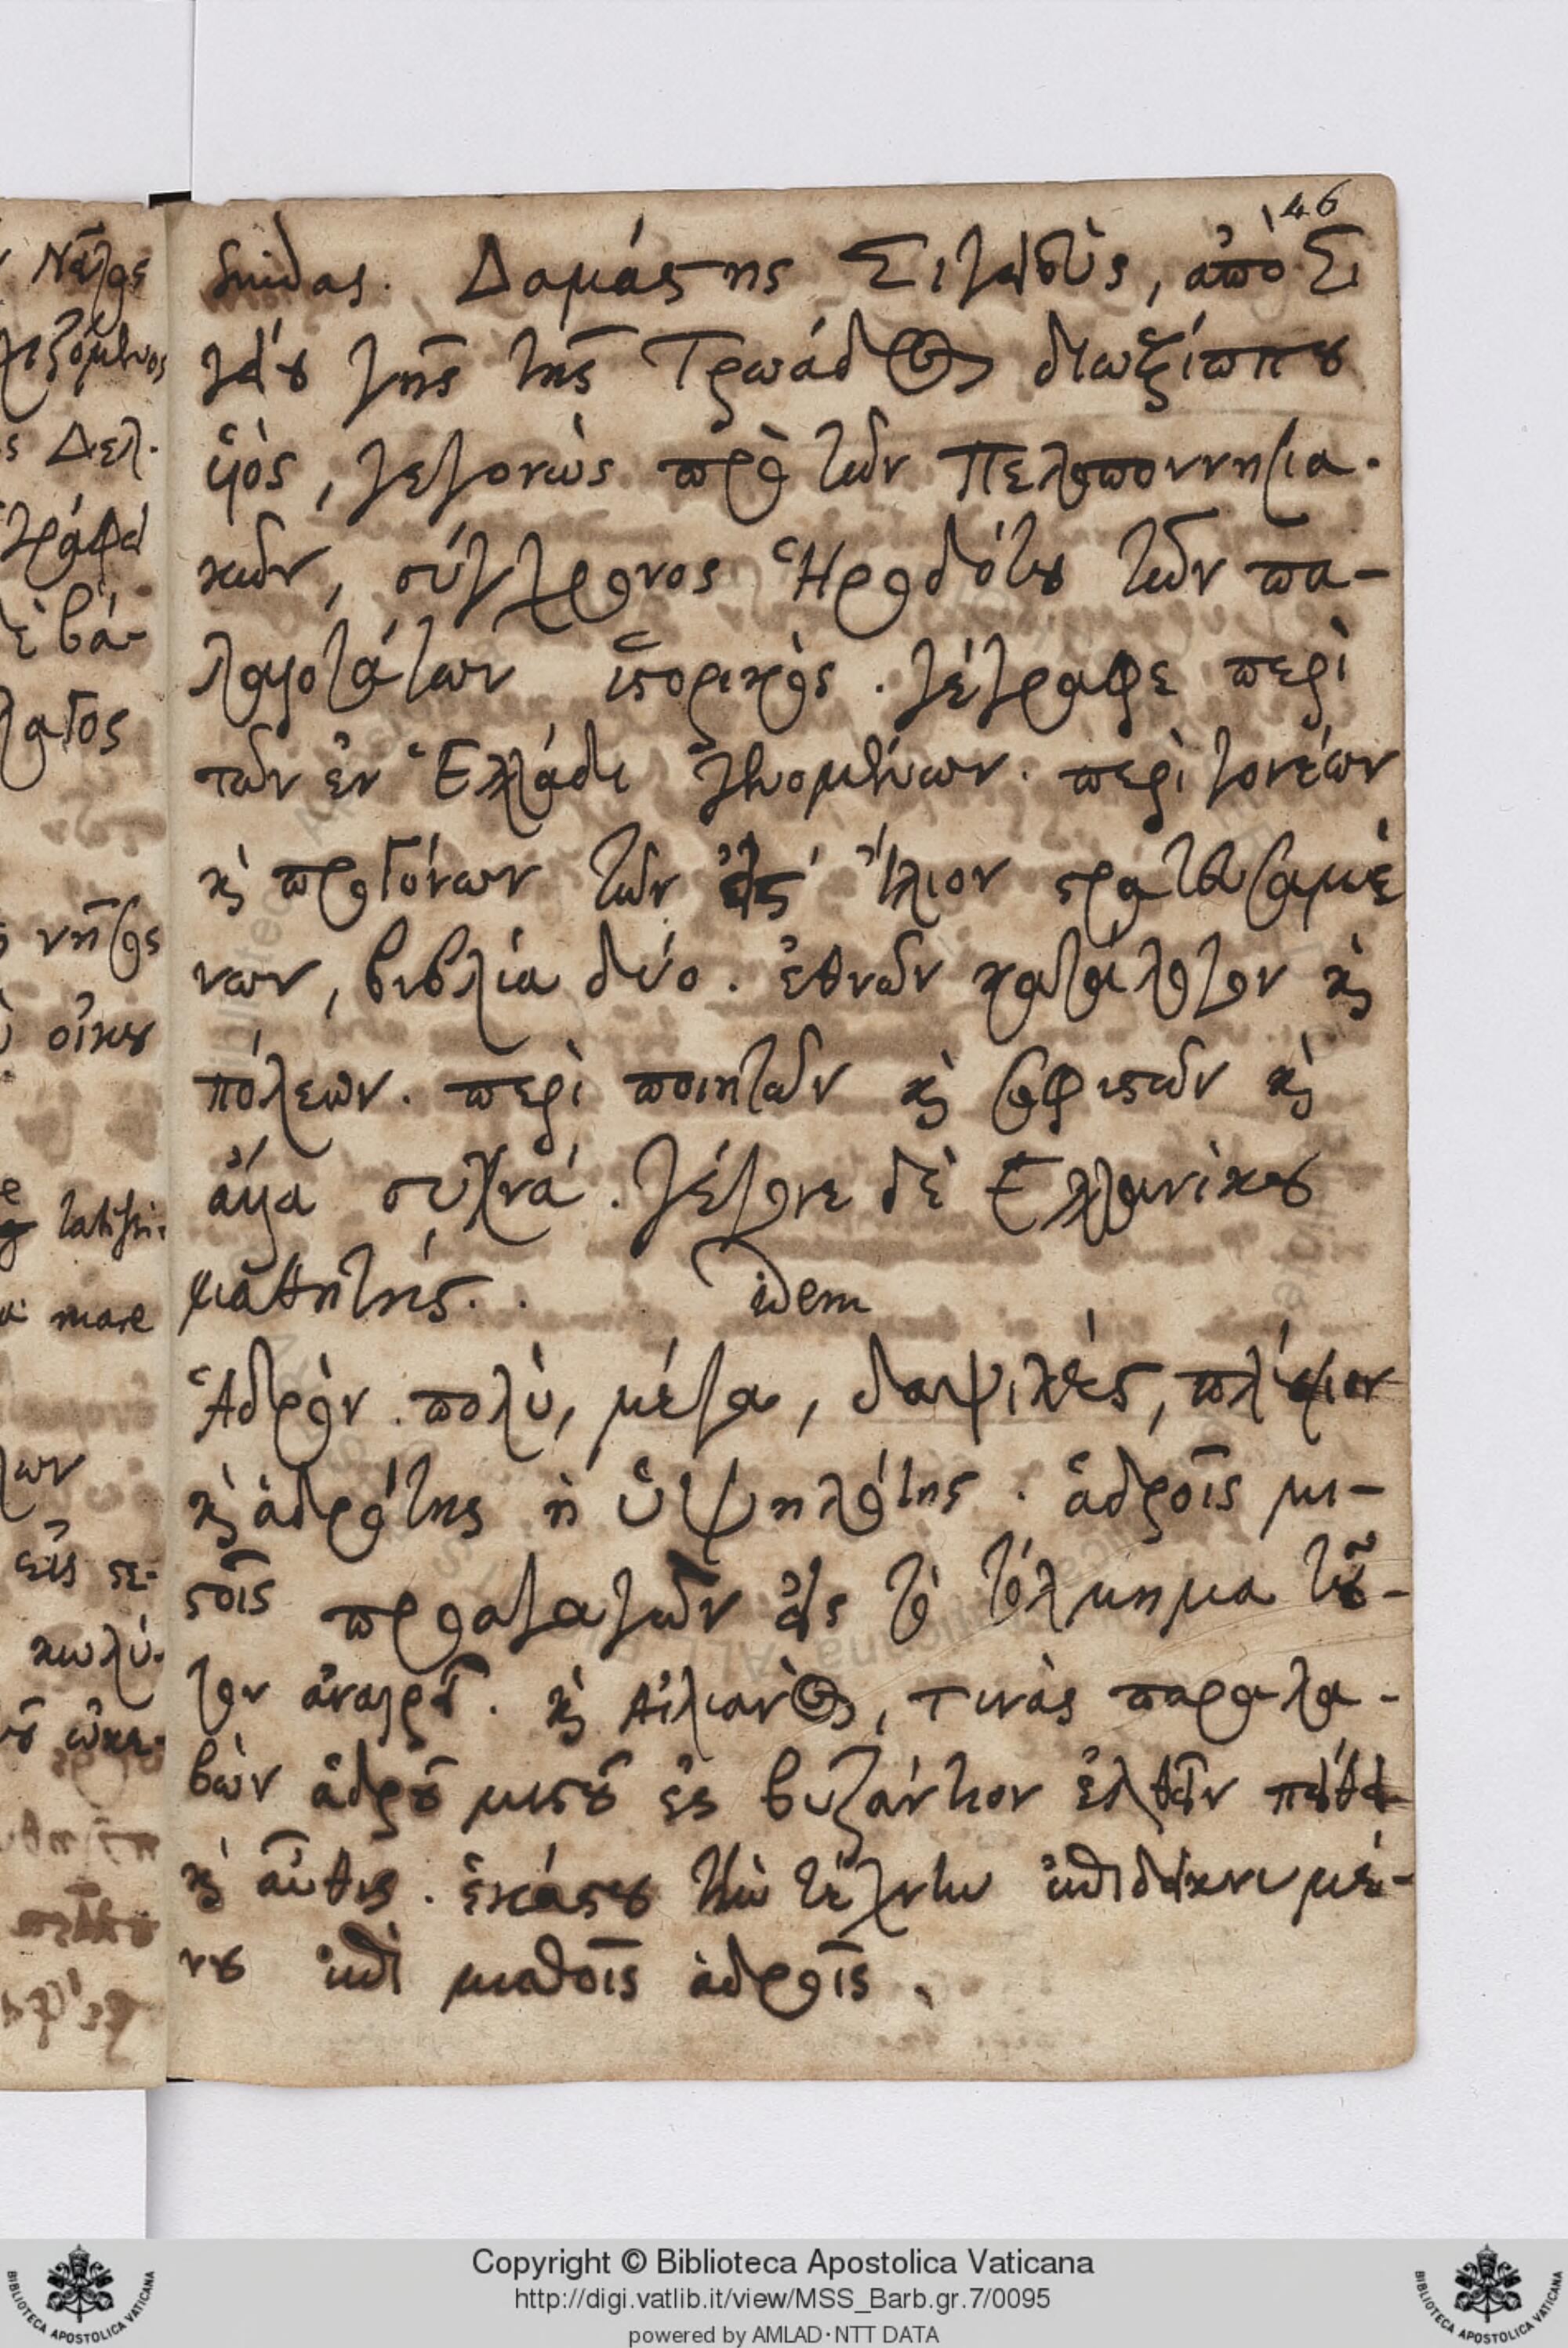 46
Suidas. Δαμάστης Σιγειεὺς, ἀπὸ Σι
γείου γῆς τῆς Τρωάδος διωξίππου
ὑιὸς, γεγονὼς πρὸ τῶν Πελοποννησια.
κῶν, σύγχρονος Ἡροδότου τῶν πα-
λαιοτάτων ἱστορικὸς. γέγραφε περὶ
τῶν ἐν Ἑλλάδι γενομένων. περὶ γονέων
καὶ προγόνων τῶν εἰς Ἴλιον στρατευσαμέ
νων, βιβλία δύο. ἐθνῶν κατάλογον καὶ
πόλεων. περὶ ποιητῶν καὶ σοφιστῶν καὶ
ἄλλα συχνά. γέγονε δὲ Ἑλλανίκου
μαθητής.. idem
Ἁδρὸν. πολὺ, μέγα, δαψιλές, πλούσιον
καὶ ἁδρότης ἡ ὑψηλότης. ἁδροῖς μι-
στοῖς προαγαγὼν εἰς τὸ τόλμημα τοῦ-
τον ἀναιρεῖ. καὶ Αἰλιανὸς, τινὰς παραλα-
βὼν ἁδροῦ μιστοῦ ἐς βυζάντιον ἐλθεῖν πείθει
καὶ αὖθις. ἑκάστου τὴν τέχνην ἐπιδεικνυμέ-
νου ἐπὶ μισθοῖς ἁδροῖς.
Νάξος
Δελ.
ἐβά-
νῆσος
οἴκου
latissi-
mare
εἰς
κωλύ-
Copyright © Biblioteca Apostolica Vaticana
http://digi.vatlib.it/view/MSS_Barb.gr.7/0095
powered by AMLAD·NTT DATA
BIBLIOTECA APOSTOLICA VATICANA
BIBLIOTECA APOSTOLICA VATICANA